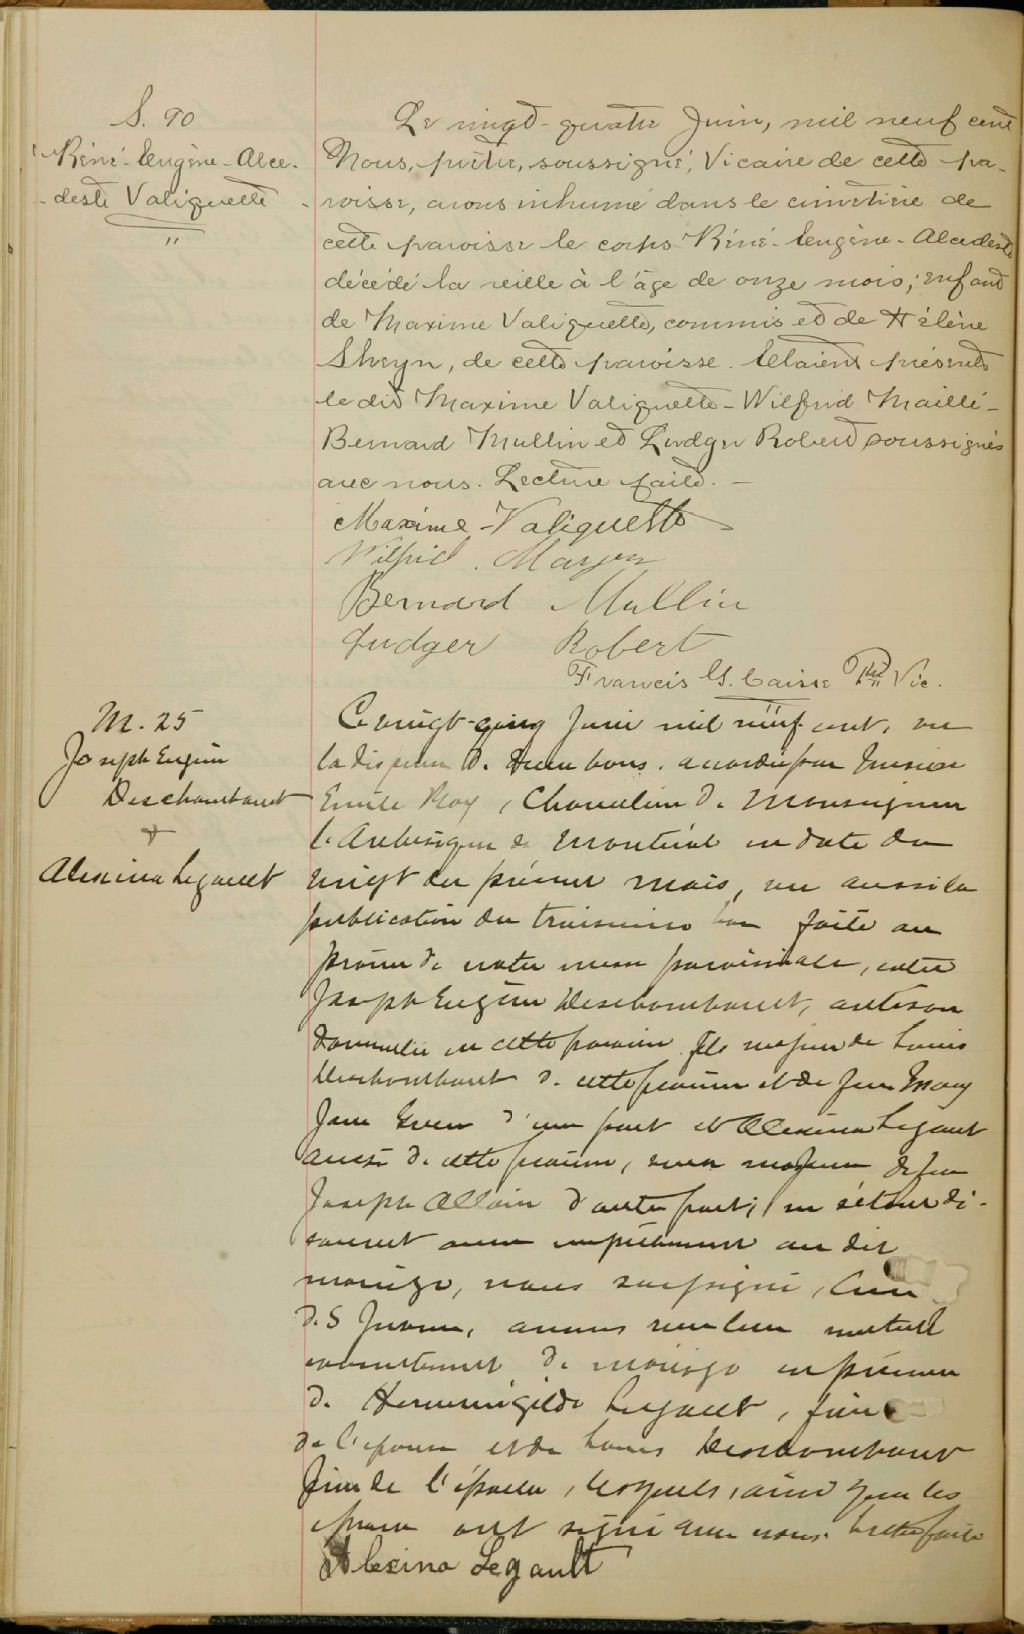 S. 90
Réné-Eugène-Alce-
deste Valiquette
"
Le vingt-quatre Juin, mil neuf cent
Nous, prêtre, soussigné, Vicaire de cette pa-
roisse, avons inhumé dans le cimetière de
cette paroisse le corps Réné-Eugène-Alcedeste
décédé la veille à l'âge de onze mois; enfant
de Maxime Valiquette, commis et de Hélène
Sheyn, de cette paroisse. Etaient présents
le dit Maxime Valiquette-Wilfrid Maillé-
Bernard Mullin et Ludger Robert soussignés
avec nous. Lecture faite.-
Maxime-Valiquette
Wilfrid Mayer
Bernard Mullin
Ludger Robert
Francis Caisse Ptre Vic.
M. 25
Joseph Eugène
Deschambault
+
Alexina Legault
Le vingt-cinq Juin mil neuf cent, vu
la dispense de deux bans accordée par Messire
Emile Roy, Chancelier de Monseigneur
l'Archevêque de Montréal en date du
vingt du présent mois, vu aussi la
publication du troisième ban faite au
prône de notre messe paroissiale, entre
Joseph Eugène Deschambault, artisan
domicilié en cette paroisse fils majeur de Louis
Deschambault de cette paroisse et de feue Mary
Jane d'une part et Alexina Legault
aussi de cette paroisse, veuve majeure de feu
Joseph Allain d'autre part; ne s'étant dé-
couvert aucun empêchement au dit
mariage, nous soussigné, Curé
avons reçu leur mutuel
consentement de mariage en présence
de Herménégilde Legault, frère
de l'épouse et de Louis Deschambault
frère de l'époux, lesquels, ainsi que les
époux ont signé avec nous. Lecture faite
Alexina Legault